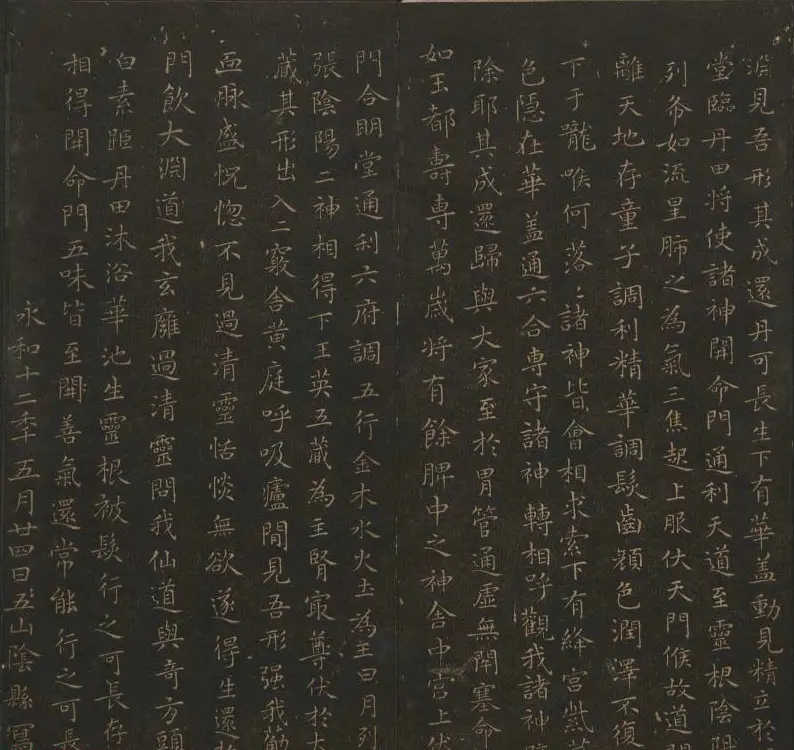 淵見吾形其成還丹可長生下有華盖動見精立於
堂臨丹田將使諸神開命門通利天道至靈根陰陽
列布如流星肺之為氣三焦起上服伏天門候故道
離天地存童子調利精華調髮齒顏色潤澤不復
下于嚨喉何落〻諸神皆會相求索下有絳宮紫華
色隱在華盖通六合專守諸神轉相呼觀我諸神辟
除耶其成還歸與大家至於胃管通虛無閉塞命
如玉都壽專萬歲將有餘脾中之神舍中宮上伏
門合明堂通利六府調五行金木水火土為王日月列
張陰陽二神相得下王英五藏為主腎冣尊伏於大
藏其形出入二竅舍黃庭呼吸廬間見吾形强我筋
血脉盛恍惚不見過清靈恬惔無欲遂得生還於
門飲大淵道我玄廱過清靈問我仙道與奇方頭
白素距丹田沐浴華池生靈根被髮行之可長存
相得開命門五味皆至開善氣還常能行之可長
永和十二年五月廿四日五山陰縣寫